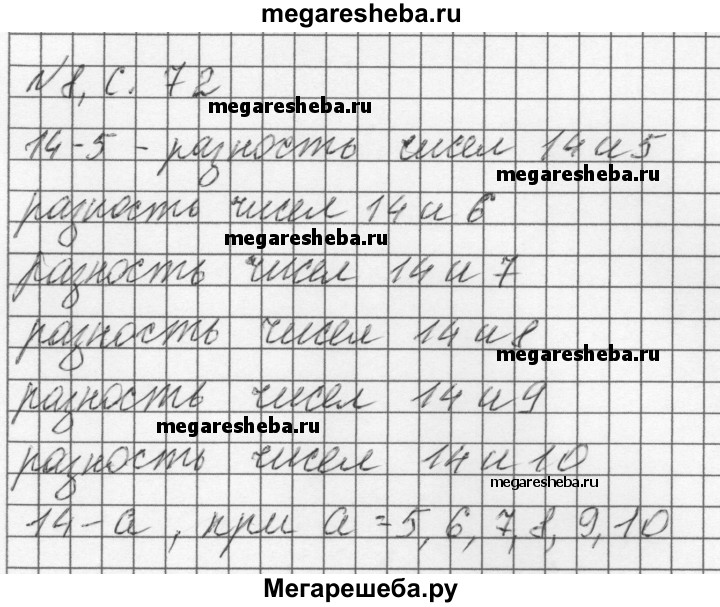 megaresheba.ru
№8, с. 72
megaresheba.ru
14-5 - разность чисел 14 и 5
megaresheba.ru
разность чисел 14 и 6
megaresheba.ru
разность чисел 14 и 7
разность чисел 14 и 8
megaresheba.ru
разность чисел 14 и 9
megaresheba.ru
разность чисел 14 и 10
megaresheba.ru
14-а, при а=5, 6, 7, 8, 9, 10
Мегарешеба.ру